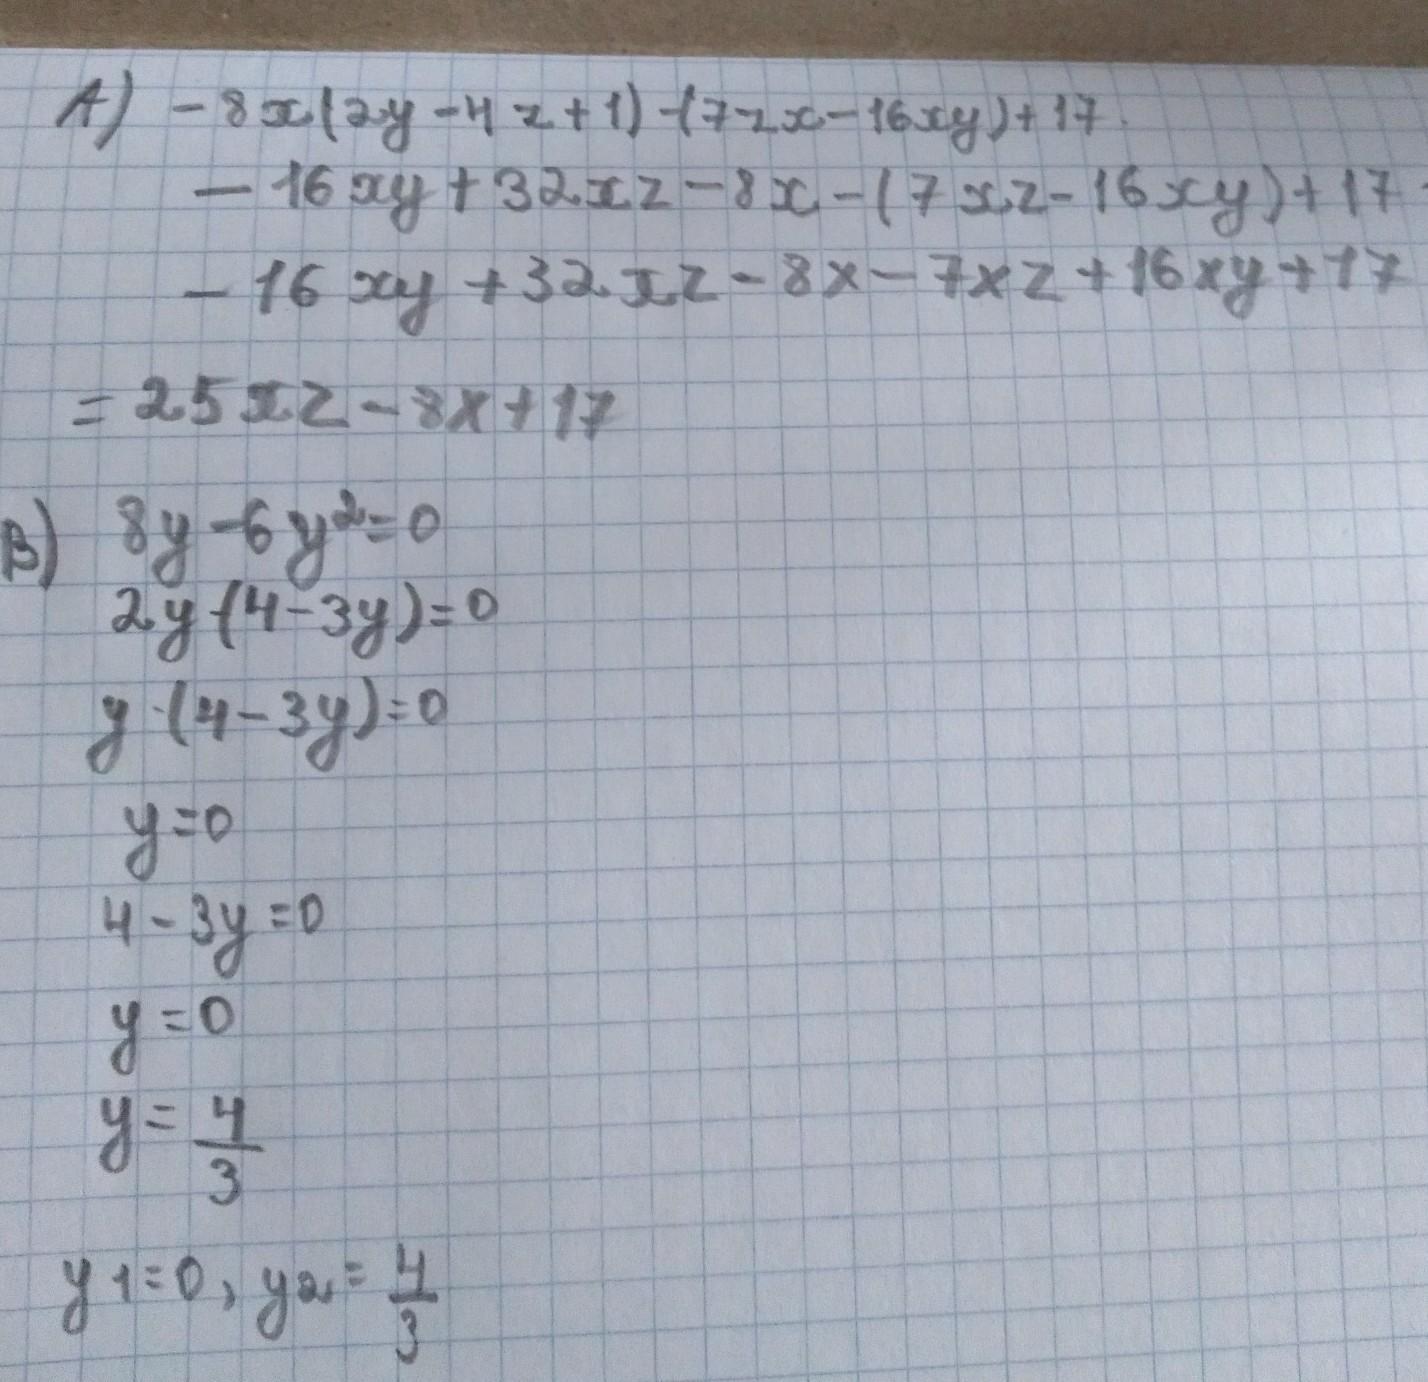 A) -8x(2y-4z+1)-(7zx-16xy)+17
-16xy+32xz-8x-(7xz-16xy)+17
-16xy+32xz-8x-7xz+16xy+17
=25xz-8x+17
B) 8y-6y²=0
2y·(4-3y)=0
y·(4-3y)=0
y=0
4-3y=0
y=0
y=4/3
y1=0, y2=4/3